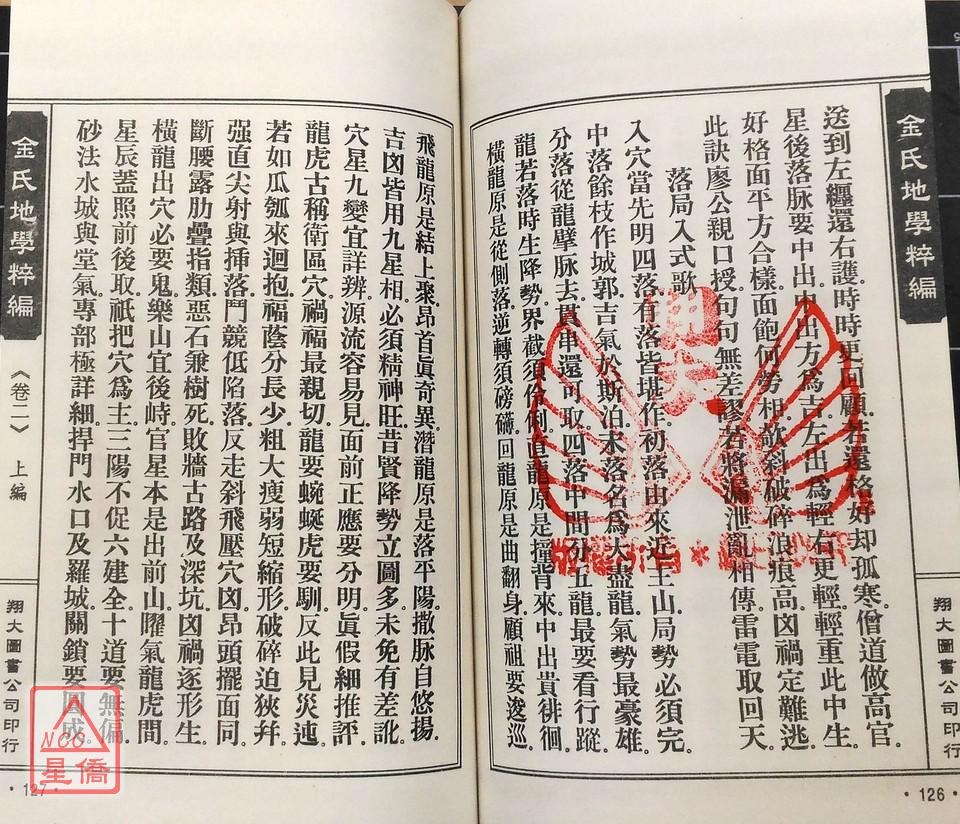 金氏地學粹編
送到左纏還右護。時時更回顧。若還格好却孤寒。僧道做高官。
星後落脉要中出。中出方為吉。左出為輕右更輕。輕重此中生。
好格面平方合樣。面飽何勞相。欹斜破碎浪痕高。凶禍定難逃。
此訣廖公親口授。句句無差謬。若將漏泄亂相傳。雷電取回天。
落局入式歌
入穴當先明四落。有落皆堪作。初落由來近主山。局勢必須完。
中落餘枝作城郭。吉氣於斯泊。末落名為大盡龍。氣勢最豪雄。
分落從龍擘脉去。貫串還可取。四落中間分五龍。最要看行蹤。
龍若落時生降勢。界截須伶俐。直龍原是撞背來。中出貴徘徊。
橫龍原是從側落。逆轉須磅礴。回龍原是曲翻身。顧祖要逡巡。
翔大圖書公司印行
・126・
飛龍原是結上聚。昂首眞奇異。潛龍原是落平陽。撒脉自悠揚。
吉凶皆用九星相。必須精神旺。昔賢降勢立圖多。未免有差訛。
穴星九變宜詳辨。源流容易見。面前正應要分明。眞假細推評。
龍虎古稱衛區穴。禍福最親切。龍要蜿蜒虎要馴。反此見災迍。
若如瓜瓠來迴抱。福蔭分長少。粗大瘦弱短縮形。破碎迫狹幷。
強直尖射與揷落。鬥競低陷落。反走斜飛壓穴凶。昂頭擺面同。
斷腰露肋疊指類。惡石兼樹死。敗牆古路及深坑。凶禍逐形生。
橫龍出穴必要鬼。樂山宜後峙。官星本是出前山。曜氣龍虎間。
星辰蓋照前後取。祇把穴為主。三陽不促六建全。十道要無偏。
砂法水城與堂氣。專部極詳細。捍門水口及羅城。關鎖要回成。
金氏地學粹編
《卷二》 上編
翔大圖書公司印行
・127・
翔大
NCC
星僑